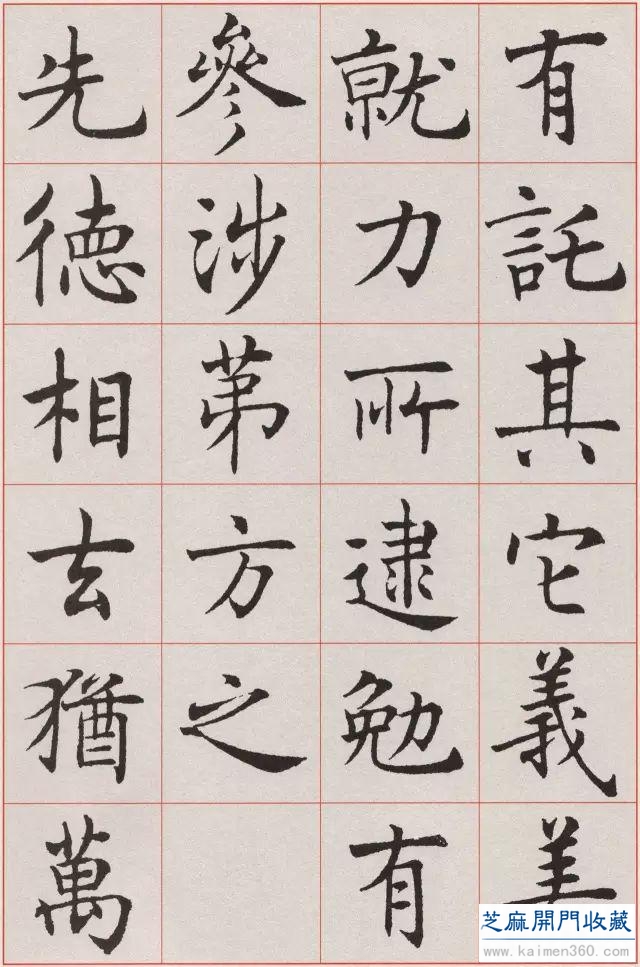 有託其它義美
就力所逮勉有
參涉苐方之
先徳相去猶萬
芝麻開門收藏
www.kaimen360.com